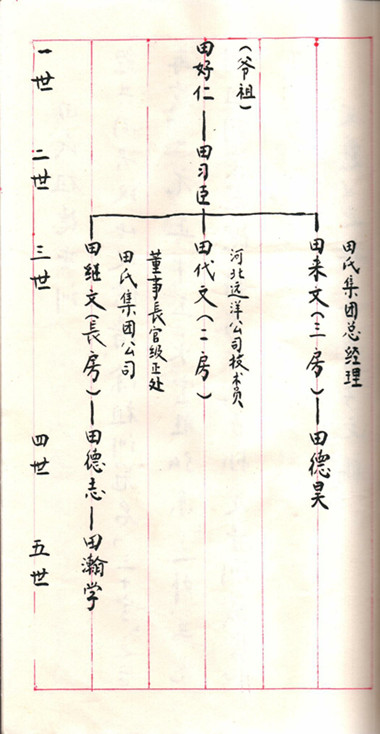 一世
二世
三世
四世
五世
(爷祖)
田好仁
田习臣
田继文(長房)
田氏集团公司
董事長官级正处
田代文(二房)
河北远洋公司技术员
田来文(三房)
田氏集团总经理
田德志
田德昊
田瀚学